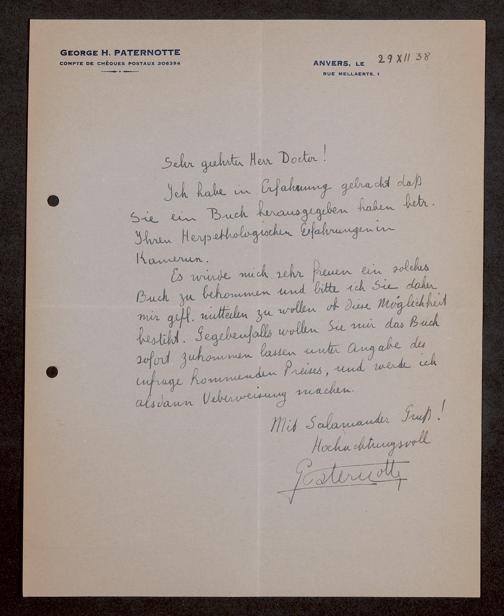 GEORGE H. PATERNOTTE
COMPTE DE CHÈQUES POSTAUX 206394
ANVERS, LE 29 XII 38
RUE MELLAERTS, 1
Sehr geehrter Herr Doctor!
Ich habe in Erfahrung gebracht daß
Sie ein Buch herausgegeben haben betr.
Ihren Herpethologischen Erfahrungen in
Kamerun.
Es würde mich sehr freuen ein solches
Buch zu bekommen und bitte ich Sie daher
mir gefl. mitteilen zu wollen ob diese Möglichkeit
besteht. Gegebenfalls wollen Sie mir das Buch
sofort zukommen lassen unter Angabe des
infrage kommenden Preises, und werde ich
alsdann Ueberweisung machen.
Mit Salamander Gruß!
Hochachtungsvoll
GPaternotte